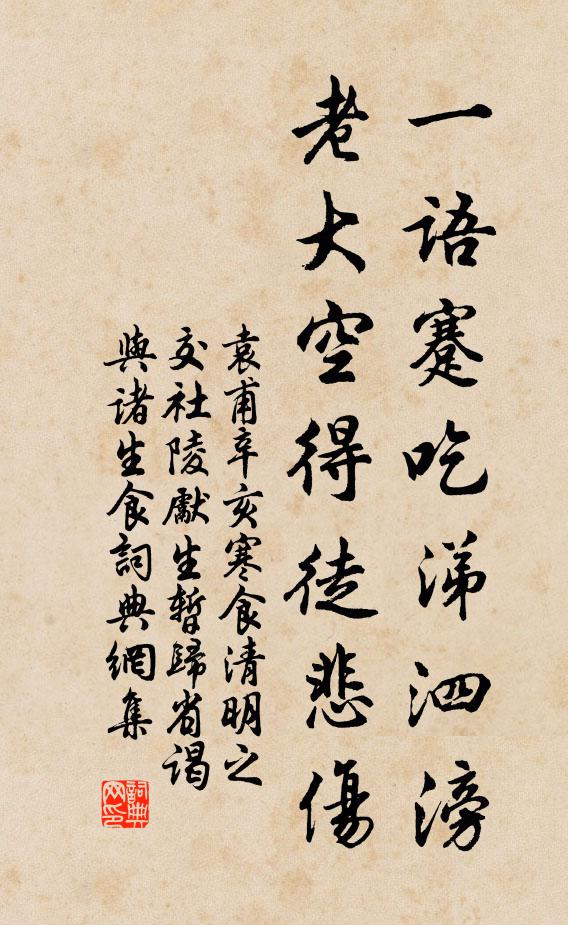 一語蹇吃涕泗滂
老大空得徒悲傷
袁甫辛亥寒食清明之
交社陵獻生暫歸省謁
與诸生食詞典網集
詞典网印